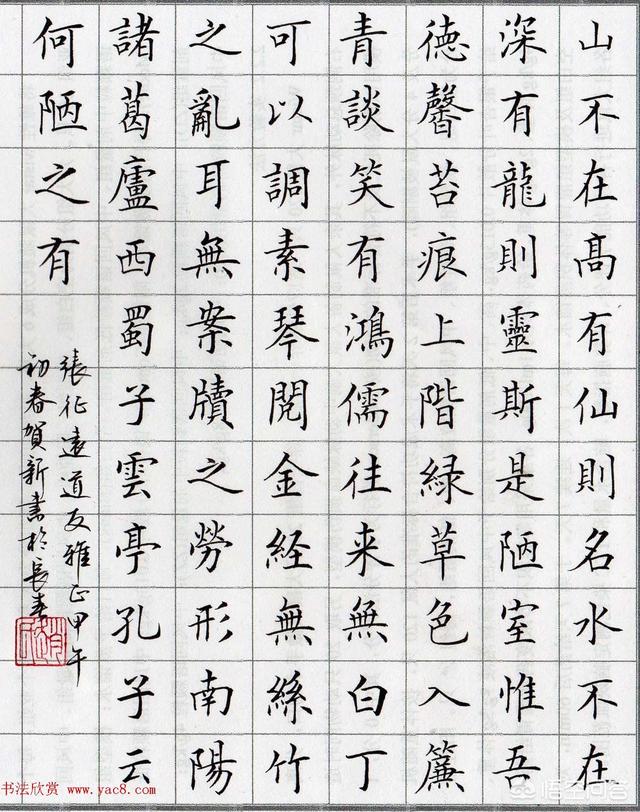 山不在髙有仙則名水不在
深有龍則靈斯是陋室惟吾
德馨苔痕上階緑草色入簾
青談笑有鴻儒往来無白丁
可以調素琴閲金経無絲竹
之亂耳無案牘之勞形南陽
諸葛廬西蜀子雲亭孔子云
何陋之有
張征遠道友雅正甲午
初春賀新書於長春
书法欣赏 www.yac8.com
悟空问答